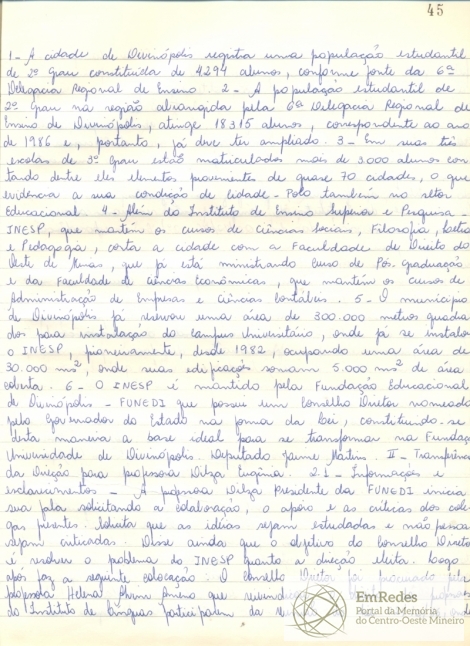 45
1 - A cidade de Divinópolis registra uma população estudantil
de 2º Grau constituída de 4294 alunos, conforme fonte da 6ª
Delegacia Regional de Ensino. 2 - A população estudantil de
2º Grau na região abrangida pela 6ª Delegacia Regional de
Ensino de Divinópolis, atinge 18315 alunos, correspondente ao ano
de 1986 e, portanto, já deve ter ampliado. 3 - Em suas três
escolas de 3º Grau estão matriculados mais de 3.000 alunos con-
tando dentre eles elementos provenientes de quase 70 cidades, o que
evidencia a sua condição de cidade-Polo também no setor
Educacional. 4 - Além do Instituto de Ensino Superior e Pesquisa -
INESP, que mantém os cursos de Ciências Sociais, Filosofia, Letras
e Pedagogia, conta a cidade com a Faculdade de Direito do
Oeste de Minas, que já está ministrando curso de Pós-graduação
e da Faculdade de Ciências Econômicas, que mantém os cursos de
Administração de Empresas e Ciências Contábeis. 5 - O município
de Divinópolis já reservou uma área de 300.000 metros quadra-
dos para instalação do Campus Universitário, onde já se instalou
o INESP, pioneiramente, desde 1982, ocupando uma área de
30.000 ms², onde suas edificações somam 5.000 ms² de área
coberta. 6 - O INESP é mantido pela Fundação Educacional
de Divinópolis - FUNEDI que possui um Conselho Diretor nomeado
pelo Governador do Estado na forma da Lei, constituindo-se
desta maneira a base ideal para se transformar na Fundação
Universidade de Divinópolis. Deputado Jaime Martins. II - Transferência
da Direção para professora Dilza Eugênia. 2.1 - Informações e
esclarecimentos - A professora Dilza Presidente da FUNEDI inicia
sua fala solicitando a colaboração, o apoio e as críticas dos cole-
gas presentes. Solicita que as idéias sejam estudadas e não pessoas
sejam criticadas. Disse ainda que o objetivo do Conselho Diretor
é resolver o problema do INESP quanto a direção eleita. Logo
após faz a seguinte colocação: O Conselho Diretor foi procurado pela
professora Helena que
do Instituto de Línguas participarem da
EmRedes
Portal da Memória
do Centro-Oeste Mineiro